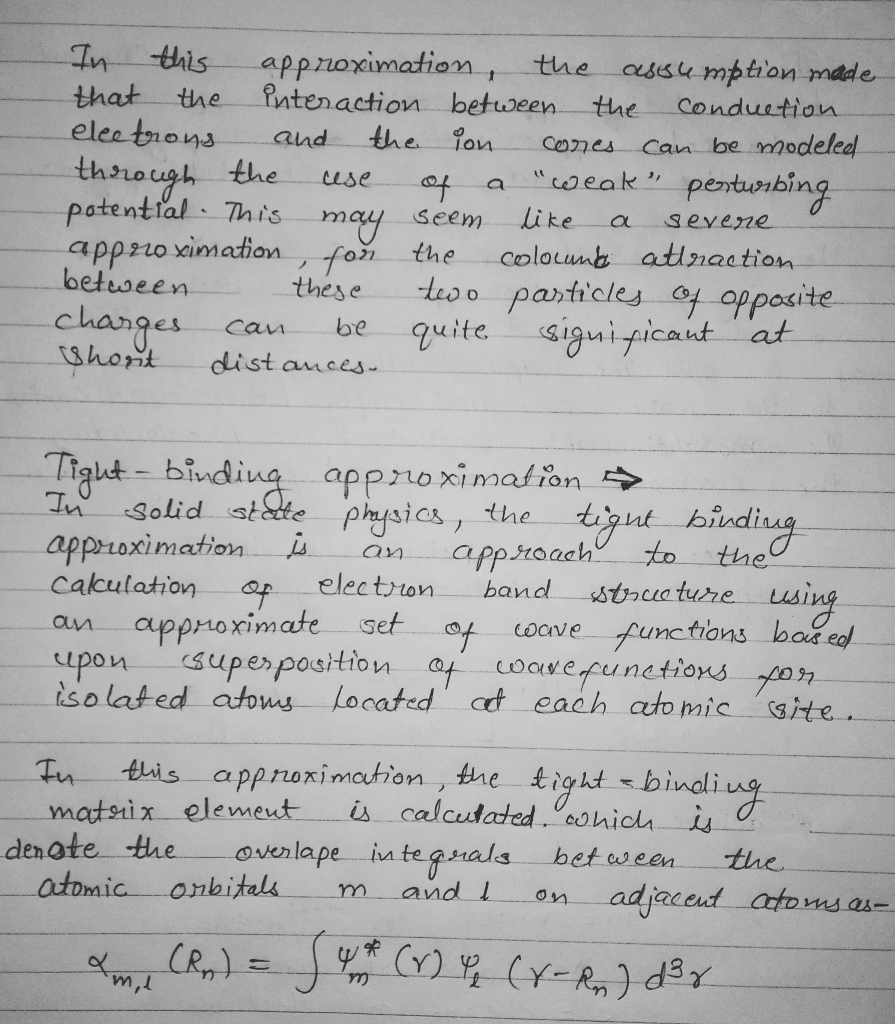 In this approximation, the asssumption made
that the interaction between the conduction
electrons and the ion cores can be modeled
through the use of a "weak" perturbing
potential. This may seem like a severe
approximation, for the coloumb attraction
between these two particles of opposite
charges can be quite significant at
short distances.
Tight-binding approximation ⇒
In solid state physics, the tight binding
approximation is an approach to the
calculation of electron band structure using
an approximate set of wave functions based
upon superposition of wavefunctions for
isolated atoms located at each atomic site.
In this approximation, the tight-binding
matrix element is calculated. which is
denote the overlape integrals between the
atomic orbitals m and l on adjacent atoms as-
α_{m,l} (R_n) = ∫ Ψ*_m (r) φ_l (r-R_n) d³r